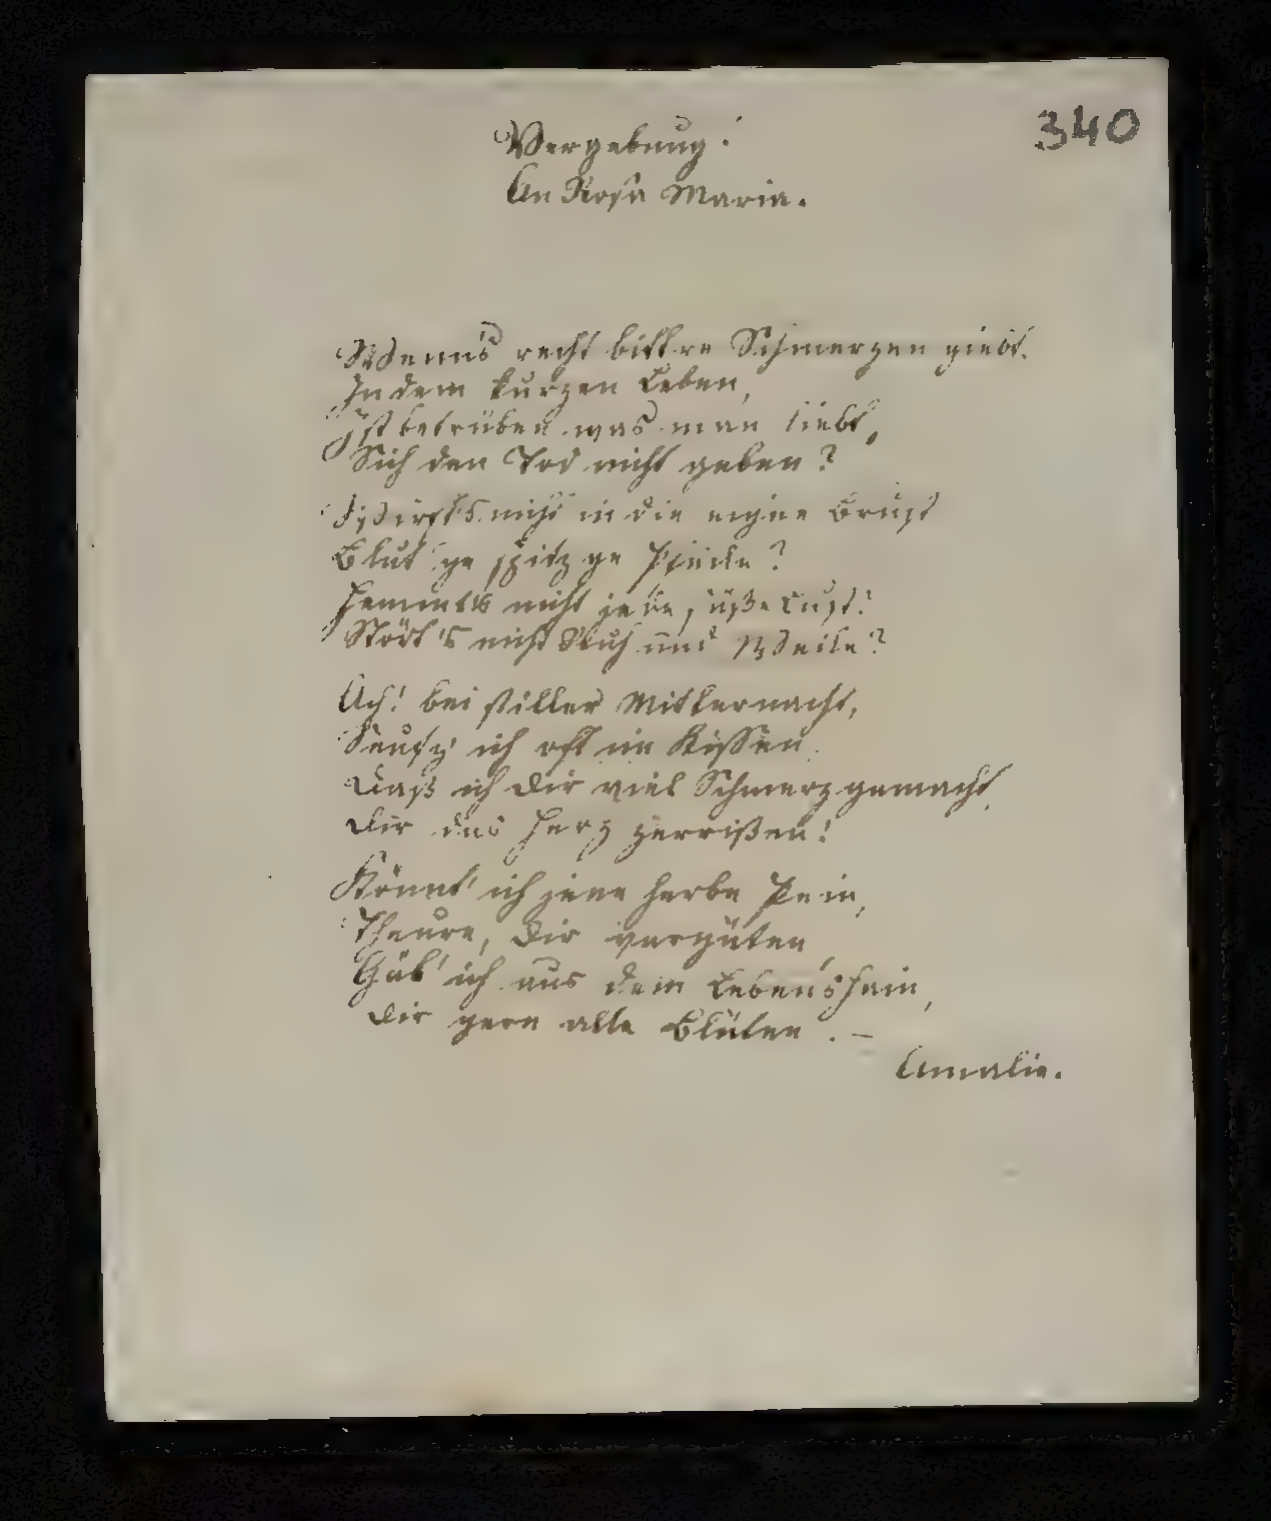 340
Vergebung!
An Rosa Maria.
Wenn's recht bittre Schmerzen giebt,
In dem kurzen Leben,
Ist betrüben was man liebt,
Sich den Tod nicht geben?
Wirft's nicht in die eigne Brust
Blut'ge spitz'ge Pfeile?
Hemmt's nicht jede süße Lust?
Stört's nicht Ruh und Weile?
Ach! bei stiller Mitternacht,
Seufz' ich oft im Kissen
Daß ich Dir viel Schmerz gemacht,
Dir das Herz zerrißen!
Könnt' ich jene herbe Pein,
Theure, Dir vergüten,
Gäb' ich aus dem Lebenshain,
Dir gern alle Blüten. –
Amalie.